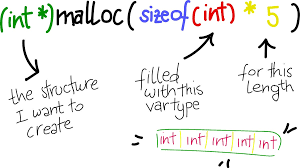 (int *)malloc(sizeof(int) * 5)
the structure
I want to
create
filled
with this
vartype
for this
length
= int int int int int